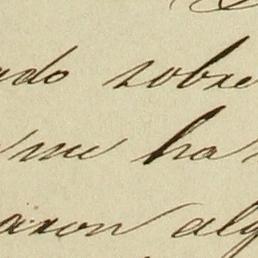 ado sobre
me ha
razon alg